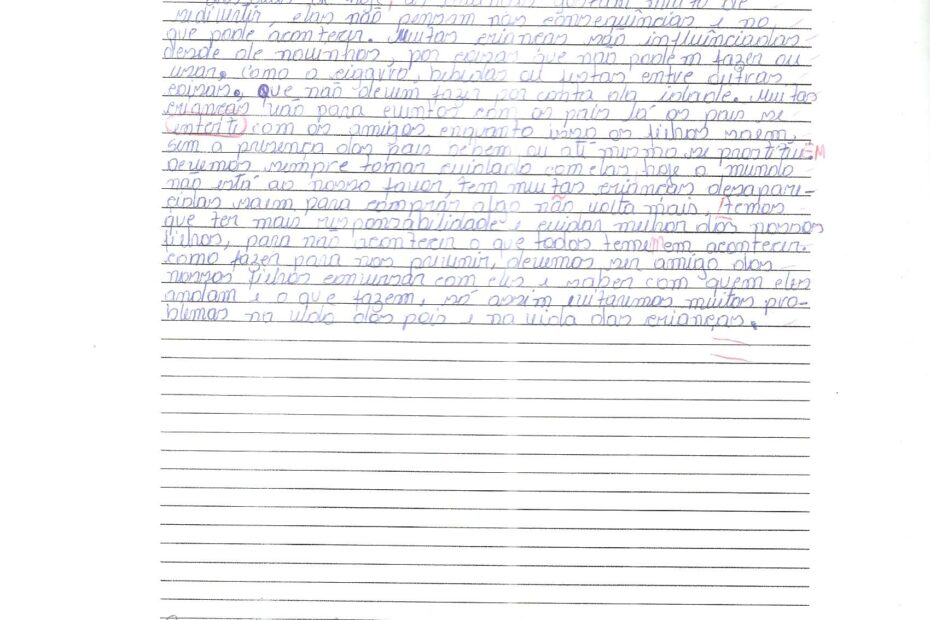 se divertir, elas não pensam nas consequências e no
que pode acontecer. Muitas crianças são influênciadas
desde de novinhos, por coisas que não podem fazer ou
usar. como o cigarro, bebidas ou estas entre outras
coisas. que não devem fazer por conta da idade. Muitas
crianças vão para eventos com os pais lá os pais se
enterte com os amigos enquanto isso os filhos saem,
sem a presença dos pais bebem ou até mesmo se prostituEM
Devemos sempre tomar cuidado com elas, hoje o mundo
não está ao nosso favor, tem muitas crianças desapare-
cidas saem para comprar algo não volta mais, temos
que ter mais responsabilidade e cuidar melhor dos nossos
filhos, para não acontecer o que todos tememem acontecer.
como fazer para nos previnir, devemos ser amigo dos
nossos filhos conversar com eles e saber com quem eles
andam e o que fazem, só assim evitaremos muitos pro-
blemas na vida dos pais e na vida das crianças.